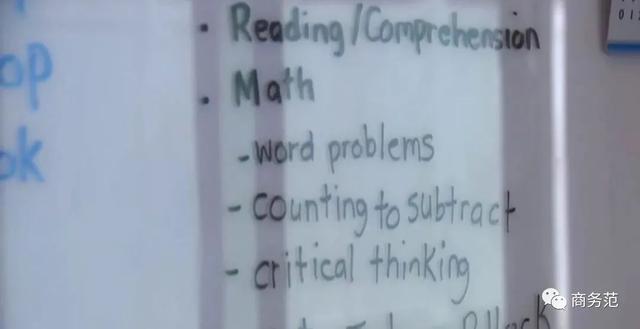 • Reading/Comprehension
• Math
op
-word problems
ok
- counting to subtract
- critical thinking
商务范